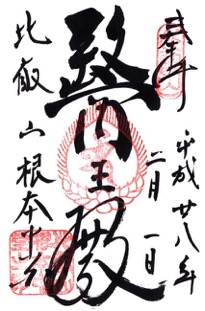 奉拝
平成廿八年
二月一日
醫王殿
比叡山根本中堂